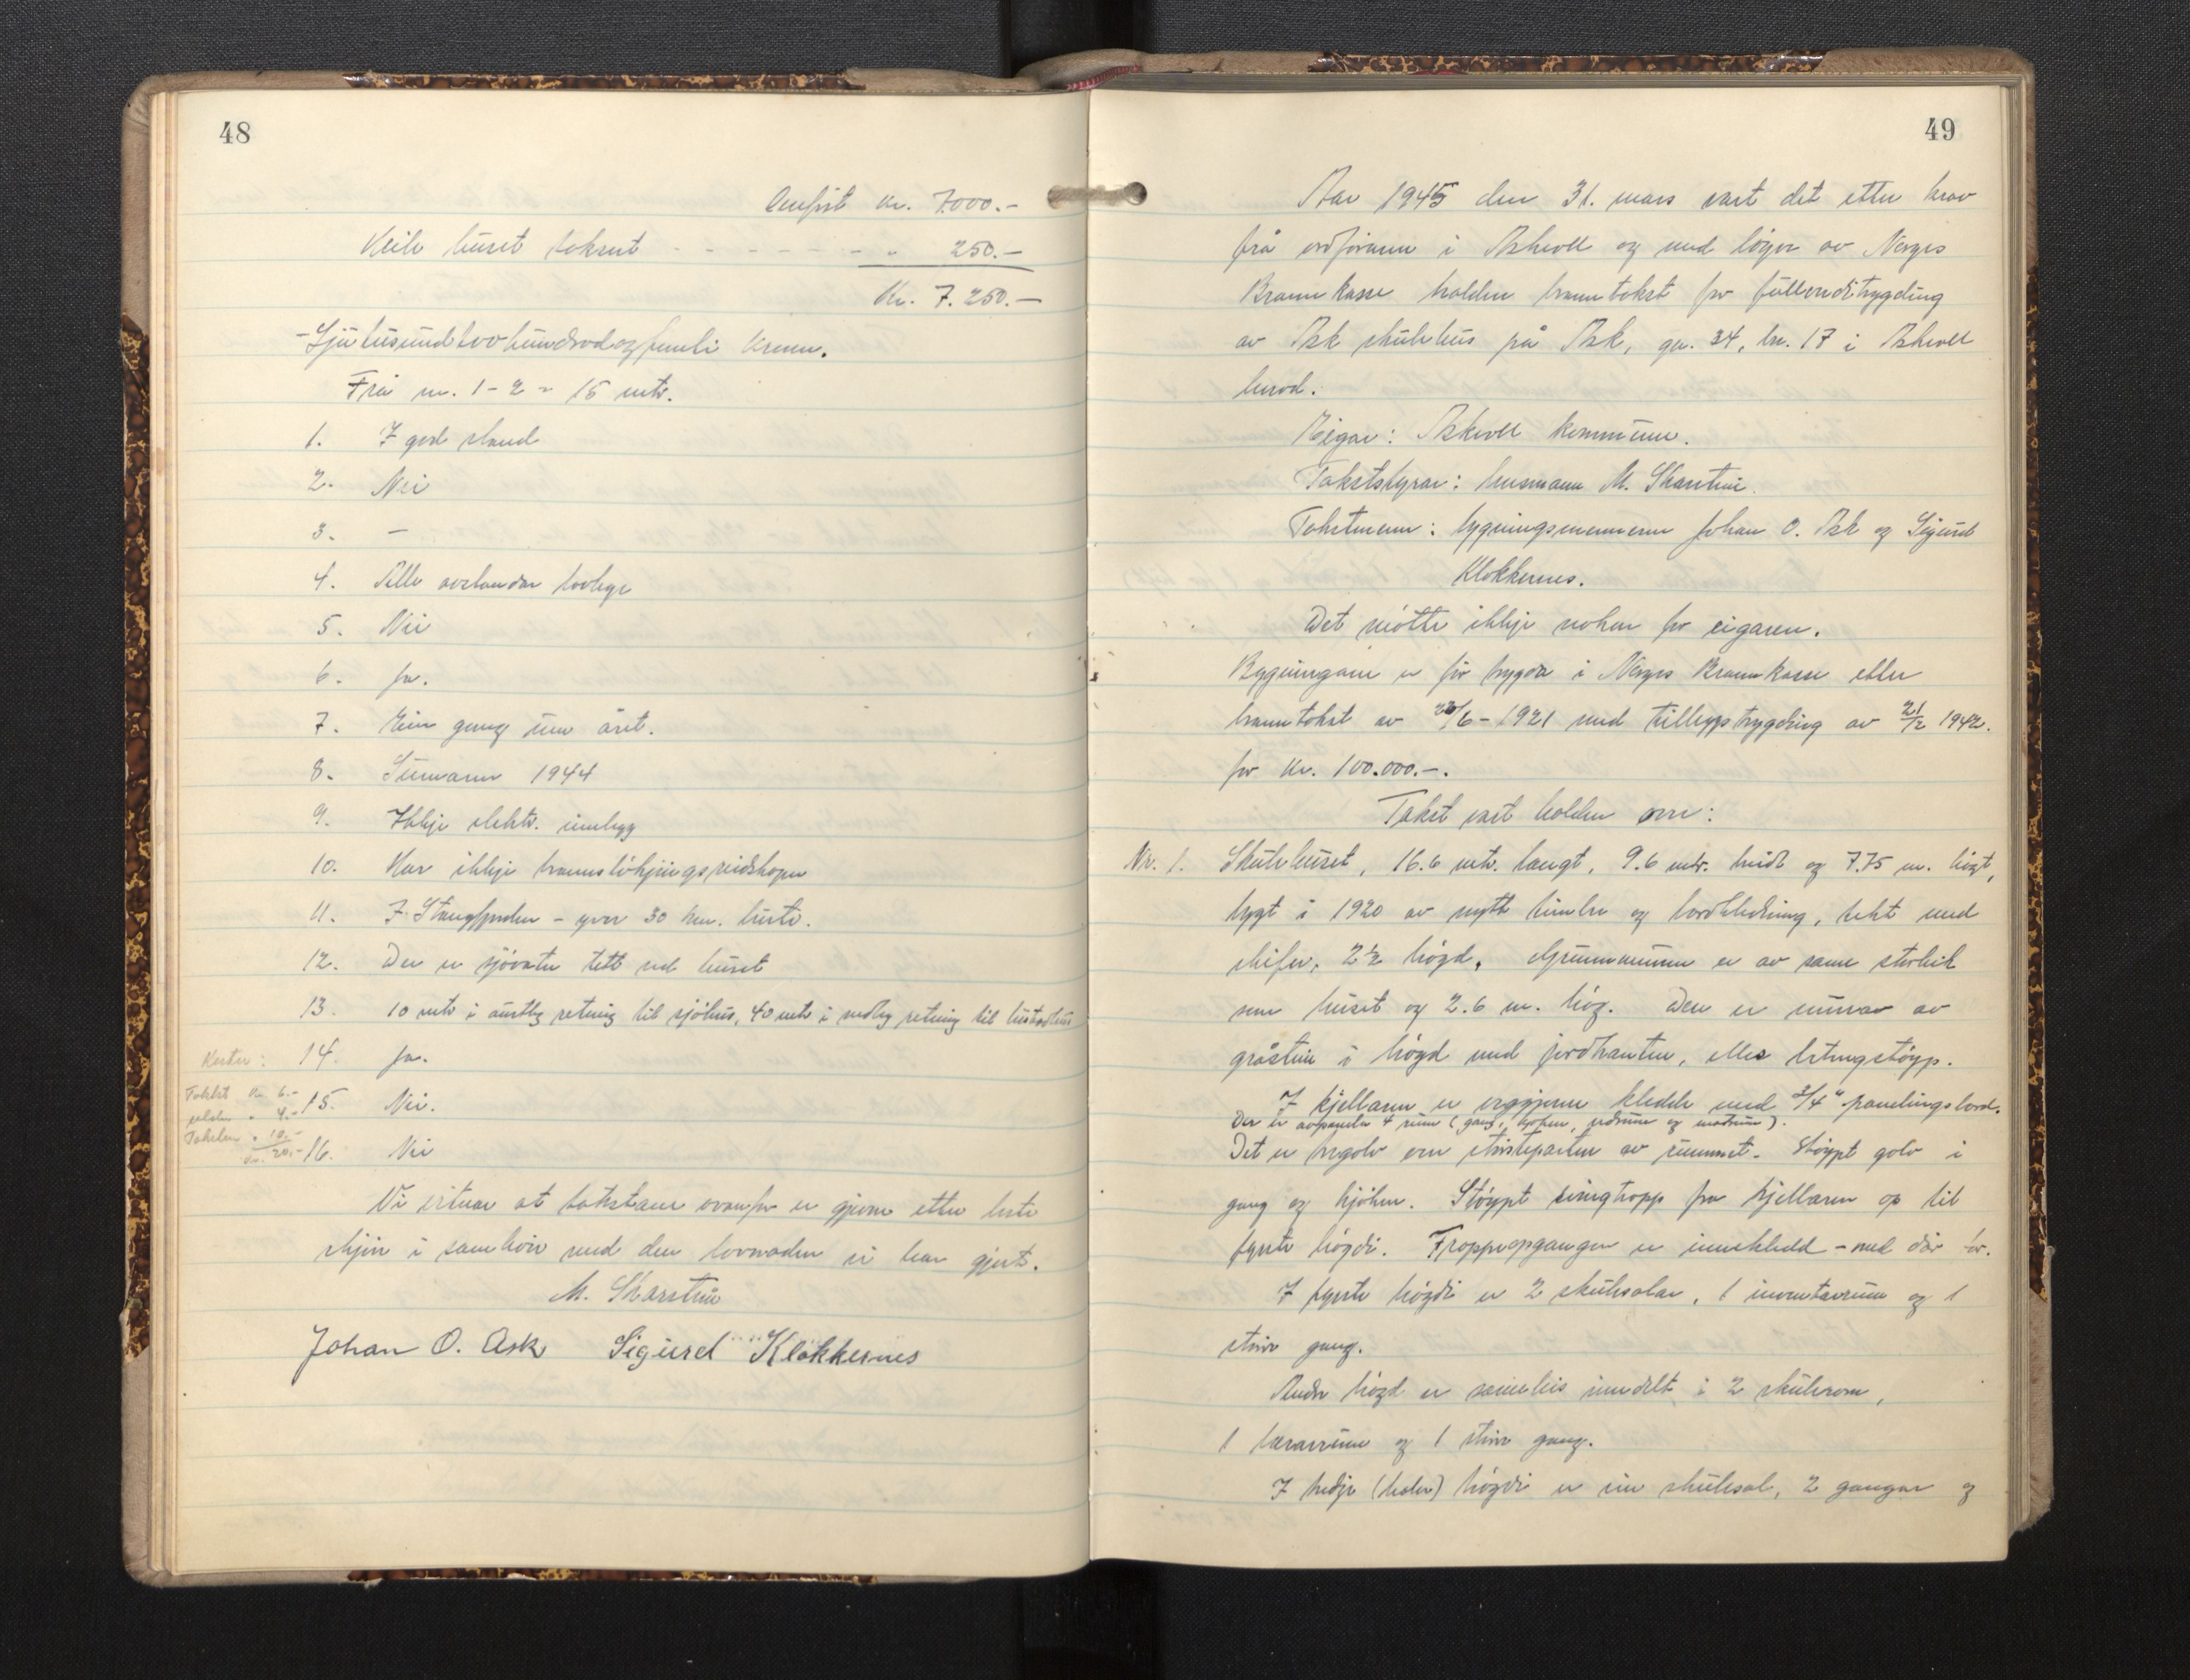 48
Avskrit kr. 7.000.-
Heile huset taksert - - - - - - - " 250.-
Kr. 7.250.-
- Sjutusundtvohundradogfemti kroner.
Frå nr. 1 - 2 = 15 mtr.
1. I god stand
2. Nei
3. -
4. Alle avstandar lovlege
5. Nei
6. Ja.
7. Ein gong um året.
8. Sumaren 1944
9. Ikkje elektr. innlegg
10. Har ikkje brannsløkjingsreidskapar
11. I Stongfjorden - yver 30 hus.
12. Der er sjövatn tett ved huset
13. 10 mtr i austleg retning til sjøhus, 40 mtr i nordleg retning til
14. Ja.
15. Nei.
16. Nei
Kostn:
Takst Kr. 6.-
" 4.-
Taksten " 10.-
Kr. 20.-
Vi vitnar at takstane ovanfor er gjevne etter beste
skjøn i samhøve med den lovnaden vi har gjort.
M. Skarstein
Johan O. Ask Sigurd Klokkernes
49
Aar 1945 den 31. mars vart det etter krav
frå ordføraren i Askvoll og med løyve av Norges
Brannkasse halden branntakst for fullverditrygding
av Ask skulehus på Ask, gn. 34, br. 17 i Askvoll
herad.
Eigar: Askvoll kommune.
Takststyrar: lensmann M. Skarstein.
Takstmenn: bygningsmennene Johan O. Ask og Sigurd
Klokkernes.
Det møtte ikkje nokon for eigaren.
Bygningane er før trygda i Norges Brannkasse etter
branntakst av 23/6 - 1921 med tilleggstrygding av 21/2 1942.
for Kr. 100.000.-.
Takst vart halden over:
Nr. 1. Skulehuset, 16.6 mtr. langt, 9.6 mtr. breidt og 7.75 m. høgt,
bygt i 1920 av nytt timber og bordkledning, tekt med
skifer, 2 1/2 høgd. Grunnmuren er av same storleik
som huset og 2.6 m. høg. Den er murar av
gråstein i høgd med jordkanten, elles betongstøyp.
I kjellaren er veggjene kledde med 3/4" panelingsbord.
Der er avpanela 4 rum (gang, kjøken, vedrum og matrum).
Det er tregolv over største parten av rummet. Støypt golv i
gang og kjøken. Støypt svingtropp fra kjellaren op til
fyrste høgdi. Troppeopgangen er innekledd - med dør for.
I fyrste høgdi er 2 skulesalar, 1 inventarrum og 1
større gang.
Andre høgd er sameleis inndelt i 2 skulerom,
1 lærarrum og 1 større gang.
I tredje (halve) høgdi er ein skulesal, 2 gangar og